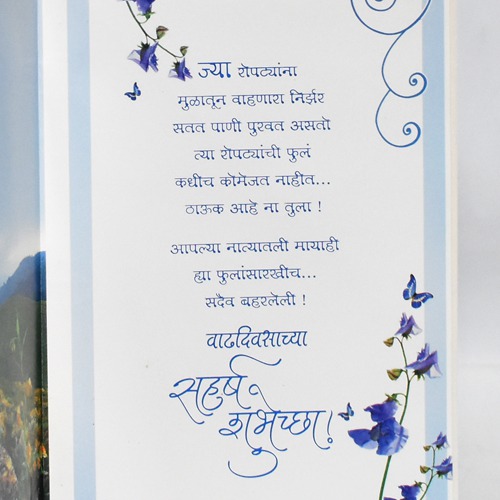 ज्या रोपट्यांना
मुळातून वाहणारा निर्झर
सतत पाणी पुरवत असतो
त्या रोपट्यांची फुलं
कधीच कोमेजत नाहीत...
ठाऊक आहे ना तुला !
आपल्या नात्यातली मायाही
ह्या फुलांसारखीच...
सदैव बहरलेली !
वाढदिवसाच्या
सहर्ष
शुभेच्छा!